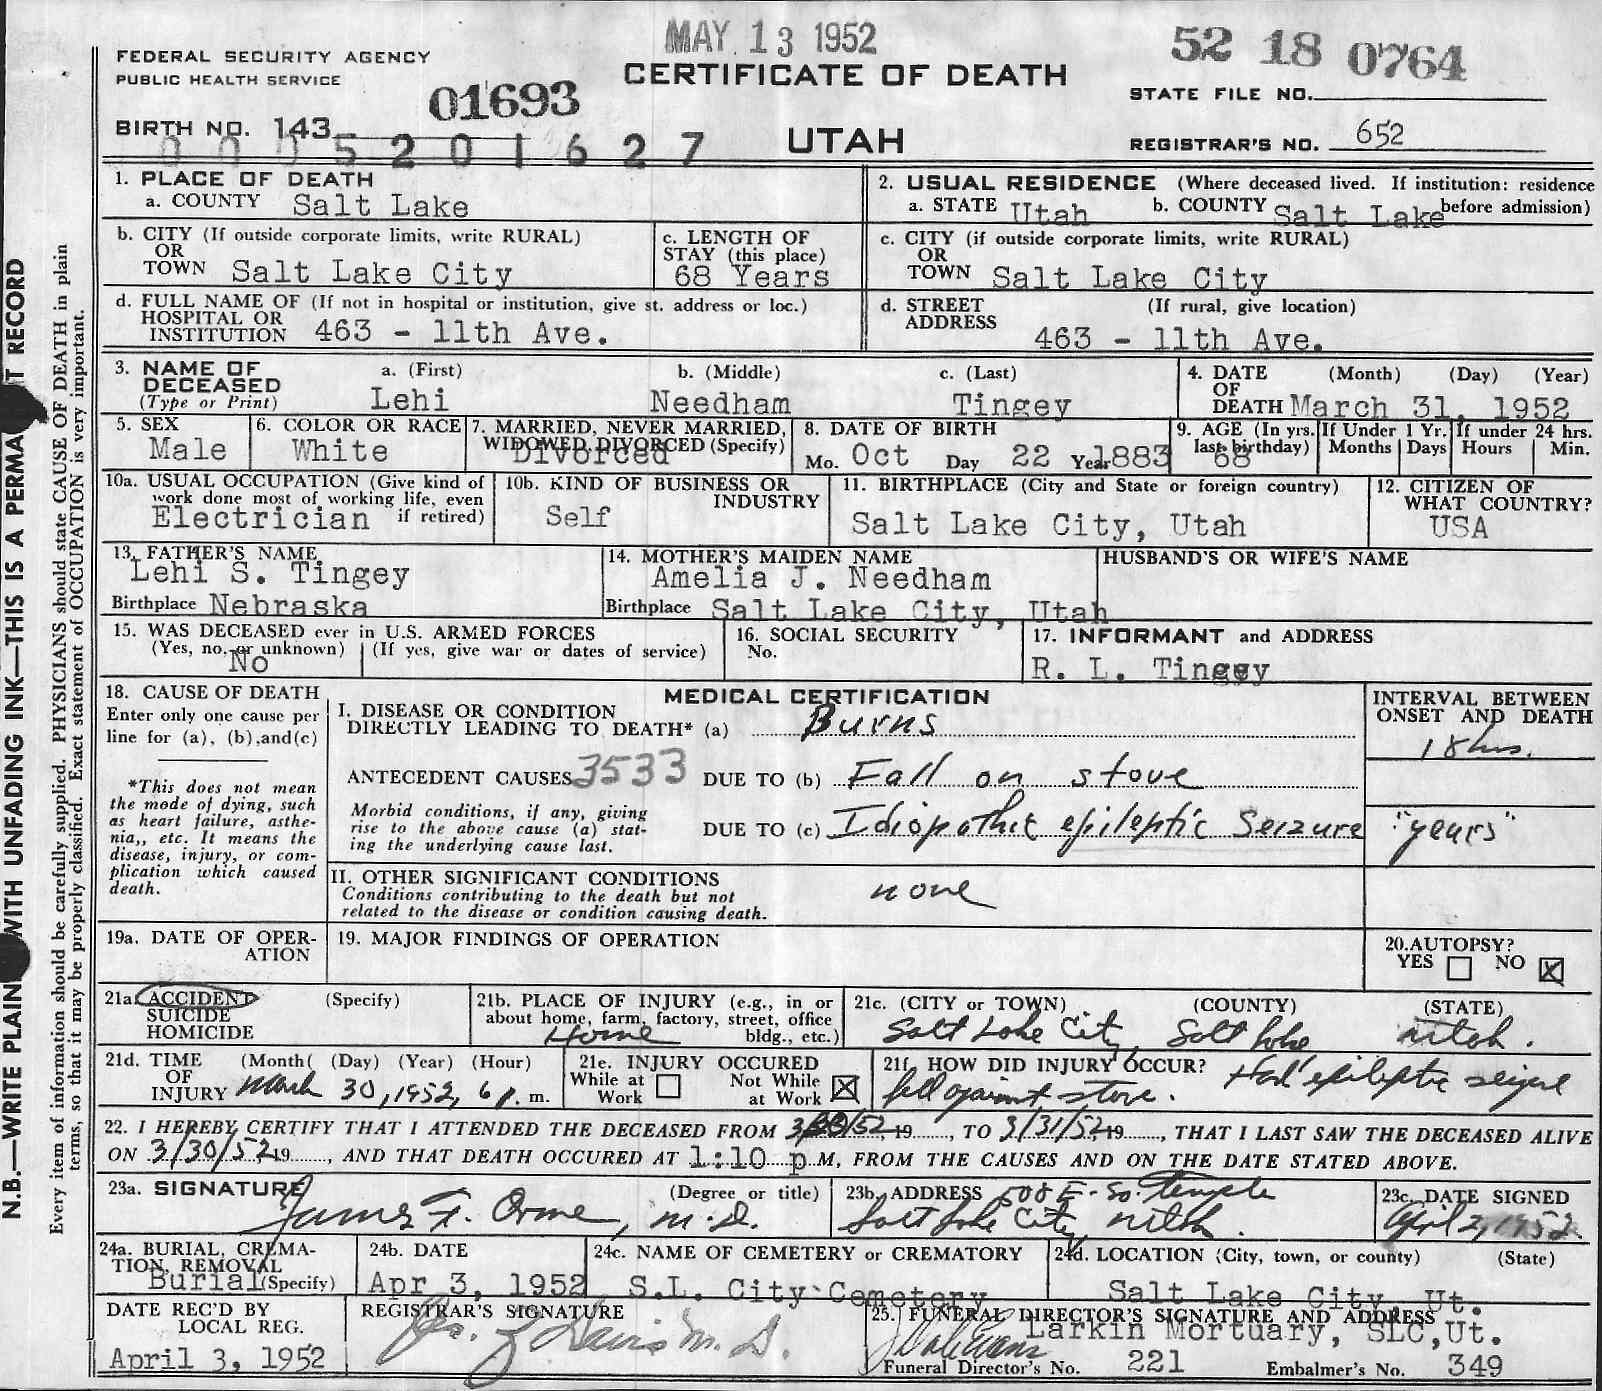 MAY 13 1952
52 18 0764
FEDERAL SECURITY AGENCY
PUBLIC HEALTH SERVICE
01693
CERTIFICATE OF DEATH
STATE FILE NO.
BIRTH NO. 143
0005201627
UTAH
REGISTRAR'S NO. 652
1. PLACE OF DEATH
a. COUNTY Salt Lake
2. USUAL RESIDENCE (Where deceased lived. If institution: residence before admission)
a. STATE Utah b. COUNTY Salt Lake
b. CITY (If outside corporate limits, write RURAL)
OR
TOWN Salt Lake City
c. LENGTH OF
STAY (this place)
68 Years
c. CITY (if outside corporate limits, write RURAL)
OR
TOWN Salt Lake City
d. FULL NAME OF (If not in hospital or institution, give st. address or loc.)
HOSPITAL OR
INSTITUTION 463 - 11th Ave.
d. STREET (If rural, give location)
ADDRESS 463 - 11th Ave.
3. NAME OF a. (First) b. (Middle) c. (Last)
DECEASED
(Type or Print) Lehi Needham Tingey
4. DATE (Month) (Day) (Year)
OF
DEATH March 31, 1952
5. SEX
Male
6. COLOR OR RACE
White
7. MARRIED, NEVER MARRIED,
WIDOWED, DIVORCED (Specify)
Divorced
8. DATE OF BIRTH
Mo. Oct Day 22 Year 1883
9. AGE (In yrs.
last birthday)
68
If Under 1 Yr.
Months Days
If under 24 hrs.
Hours Min.
10a. USUAL OCCUPATION (Give kind of
work done most of working life, even
if retired)
Electrician
10b. KIND OF BUSINESS OR
INDUSTRY
Self
11. BIRTHPLACE (City and State or foreign country)
Salt Lake City, Utah
12. CITIZEN OF
WHAT COUNTRY?
USA
13. FATHER'S NAME
Lehi S. Tingey
Birthplace Nebraska
14. MOTHER'S MAIDEN NAME
Amelia J. Needham
Birthplace Salt Lake City, Utah
HUSBAND'S OR WIFE'S NAME
15. WAS DECEASED ever in U.S. ARMED FORCES
(Yes, no, or unknown) (If yes, give war or dates of service)
No
16. SOCIAL SECURITY
No.
17. INFORMANT and ADDRESS
R. L. Tingey
18. CAUSE OF DEATH
Enter only one cause per
line for (a), (b),and(c)
*This does not mean
the mode of dying, such
as heart failure, asthe-
nia,, etc. It means the
disease, injury, or com-
plication which caused
death.
MEDICAL CERTIFICATION
I. DISEASE OR CONDITION
DIRECTLY LEADING TO DEATH* (a) Burns
ANTECEDENT CAUSES 3533 DUE TO (b) Fall on stove
Morbid conditions, if any, giving
rise to the above cause (a) stat-
ing the underlying cause last.
DUE TO (c) Idiopathic epileptic Seizure
INTERVAL BETWEEN
ONSET AND DEATH
18 hrs.
"years"
II. OTHER SIGNIFICANT CONDITIONS
Conditions contributing to the death but not
related to the disease or condition causing death.
none
19a. DATE OF OPER-
ATION
19. MAJOR FINDINGS OF OPERATION
20. AUTOPSY?
YES NO
21a. ACCIDENT (Specify)
SUICIDE
HOMICIDE
21b. PLACE OF INJURY (e.g., in or
about home, farm, factory, street, office
bldg., etc.)
Home
21c. (CITY or TOWN) (COUNTY) (STATE)
Salt Lake City, Salt Lake Utah.
21d. TIME (Month( (Day) (Year) (Hour)
OF
INJURY March 30, 1952, 6 p. m.
21e. INJURY OCCURED
While at Work Not While at Work
21f. HOW DID INJURY OCCUR? Had epileptic seizure
fell against stove.
22. I HEREBY CERTIFY THAT I ATTENDED THE DECEASED FROM 3/30/52, 19, TO 3/31/52, 19, THAT I LAST SAW THE DECEASED ALIVE
ON 3/30/52, 19, AND THAT DEATH OCCURED AT 1:10 p M, FROM THE CAUSES AND ON THE DATE STATED ABOVE.
23a. SIGNATURE (Degree or title)
James F. Orme, M.D.
23b. ADDRESS 508 E. So. Temple
Salt Lake City, Utah.
23c. DATE SIGNED
April 2, 1952
24a. BURIAL, CREMA-
TION, REMOVAL
Burial (Specify)
24b. DATE
Apr 3, 1952
24c. NAME OF CEMETERY or CREMATORY
S.L. City Cemetery
24d. LOCATION (City, town, or county) (State)
Salt Lake City, Ut.
DATE REC'D BY
LOCAL REG.
April 3, 1952
REGISTRAR'S SIGNATURE
M.D.
25. FUNERAL DIRECTOR'S SIGNATURE AND ADDRESS
Larkin Mortuary, SLC, Ut.
Funeral Director's No. 221 Embalmer's No. 349
N.B.—WRITE PLAIN WITH UNFADING INK—THIS IS A PERMA T RECORD
Every item of information should be carefully supplied. PHYSICIANS should state CAUSE OF DEATH in plain
terms, so that it may be properly classified. Exact statement of OCCUPATION is very important.